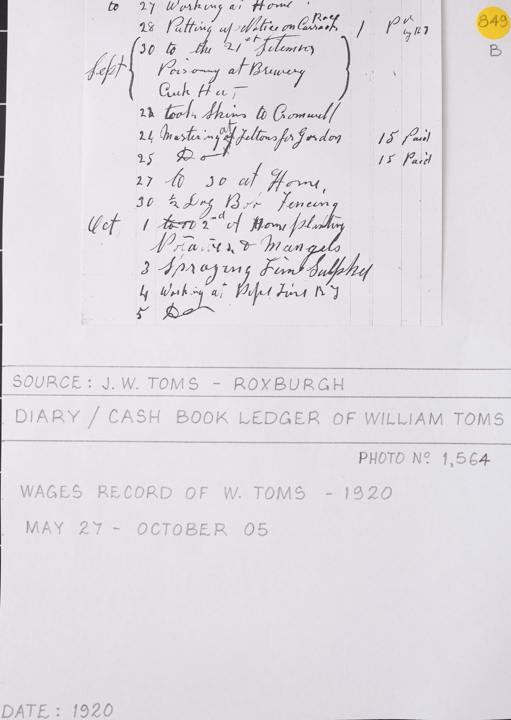 to 27 Working at Home
28 Putting up Notice on Race 1 Pd
849
B
Sept 30 to the 21st Setember
Poisoning at Brewery
Creek Hut
22 took Skins to Cromwell
24 Mustering at Feltons for Gordon 15 Paid
25 Do 15 Paid
27 to 30 at Home,
30 ½ Day Fencing
Oct 1 to 2nd at Home planting
Potatoes & Mangels
3 Spraying Lime Sulpher
4 Working at Pipe Line
5 Do
SOURCE: J.W. TOMS - ROXBURGH
DIARY / CASH BOOK LEDGER OF WILLIAM TOMS
PHOTO No 1,564
WAGES RECORD OF W. TOMS - 1920
MAY 27 - OCTOBER 05
DATE: 1920